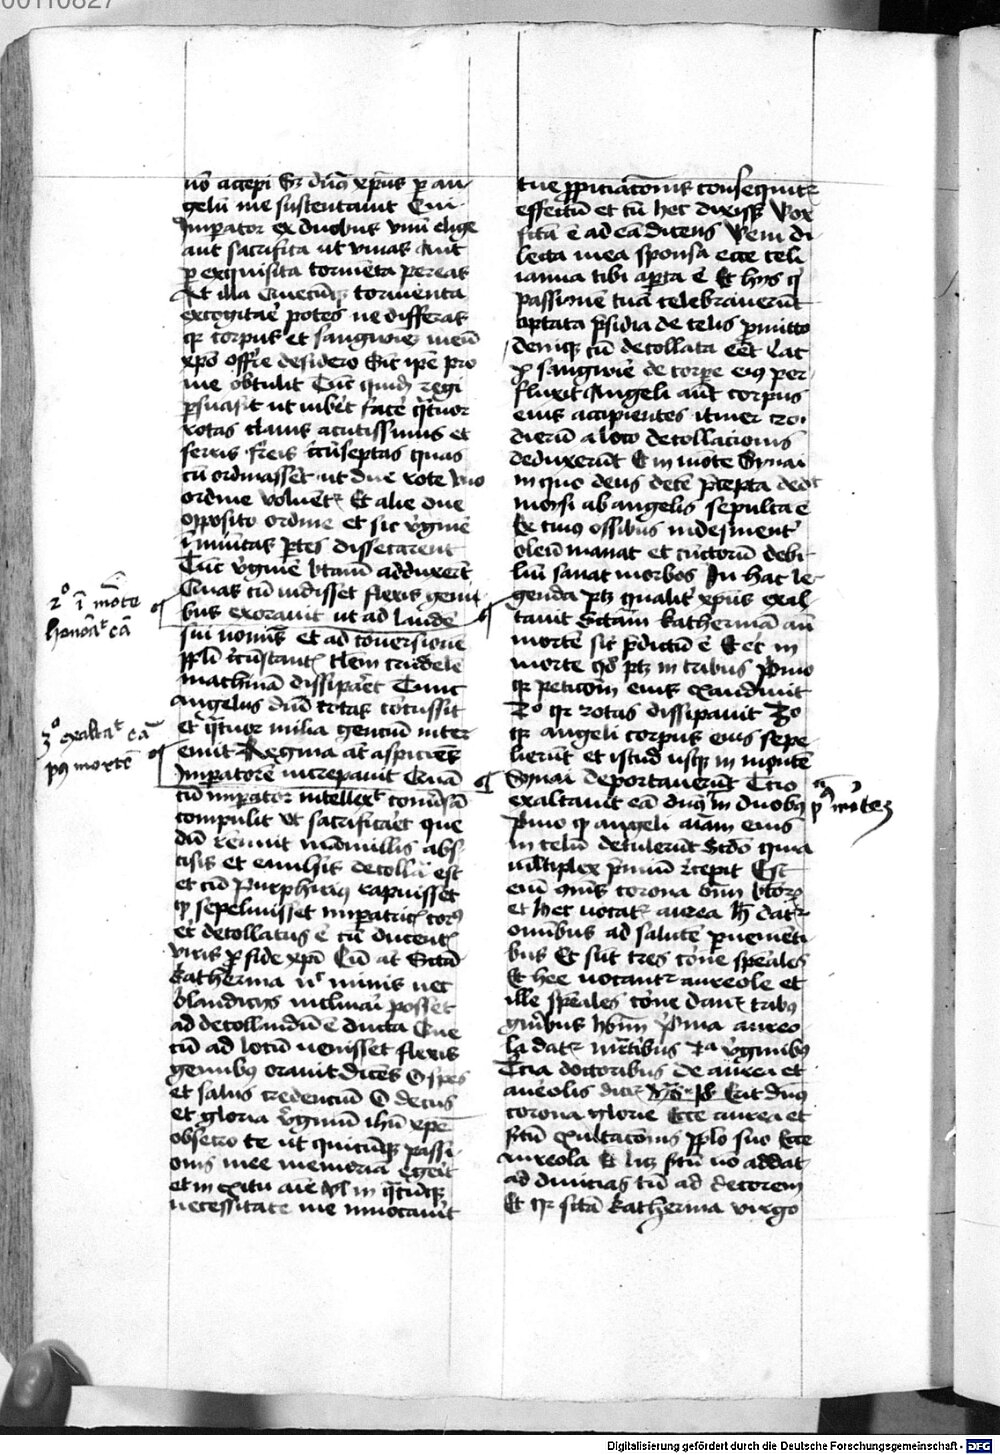 00110827
nō accepi Sȝ dn̄s xp̄us ꝑ an-
gelū me sustentauit Cui
Imperator ex duobus vnū elige
aut sacrifica ut viuas Aut
ꝑ exquisita tormēta pereas
At illa Quecūqȝ tormenta
excogitare potes ne differas
qr corpus et sanguinē meū
xpō offerre desidero Sic ip̄e pro
me obtulit Tūc quidā regi
ꝑsuasit ut iuberet facere q̄tuor
rotas clauis acutissimis et
ferris serreis circūseptas quas
cū ordinasset ut due rote vno
ordine voluerēt Et alie due
opposito ordine et sic v̓ginē
in minutas ꝑtes dissecarent
Tūc v̓ginē btām adduxerūt
Quas cū uidisset flexis geni-
bus exorauit ut ad laudē
sui nominis et ad conuersionē
ppl̄i circūstantis talem crudelē
machinā dissiparet Tunc
angelus dn̄i rotas concussit
et q̄tuor milia gentium inter
emit Regina at̄ aspiciens
Imperatorē increpauit Quā
cū imperator intellexit conuersā
compulit ut sacrificaret que
dū renuit mamillis abs
cisis et euulsis decollata est
et cū Purphirius rapuisset
et sepeliuisset imperatricis corpus
et decollatus ē cū ducentis
viris ꝑ fide xpī Cū at̄ Sctā
Katherina nec minis nec
blandicijs inclinari posset
ad decollandū ē ducta Que
cū ad locū uenisset flexis
genubus orauit dicens O spes
et salus credencium O decus
et gloria v̓ginum ihū xpē
obsecro te ut quicūqȝ passi-
onis mee memoriā egerit
et in exitu aīe vl̓ in q̄cūqȝ
necessitate me inuocauit
tue ꝓpiciatōnis consequatur
effectū et cū hec dixisset Vox
fctā ē ad eā dicens Veni di-
lecta mea sponsa ecce celi
ianua tibi aperta ē Et hijs qui
passionē tuā celebrauerūt
optata presidia de celis ꝓmitto
deniqȝ cū decollata esset Lac
ꝓ sanguine de corpe eius per
fluxit Angeli aūt corpus
eius accipientes itiner xx.
dierū a loco decollacionis
deduxerūt Et in mōte Synai
in quo deus decē precepta dedit
moysi ab angelis sepulta ē
Ex cuius ossibus indesinenter
oleū manat et cunctorū debi-
lium sanat morbos In hac le-
genda patet qualiter xpūs exal-
tauit Sctām Katherinā an
mortē sic predictū ē Et et̄ in
morte qd̓ patet in tribus Primo
qr peticōnem eius exaudiuit
2o qr rotas dissipauit 3o
qr angeli corpus eius sepe-
lierūt et istud usqȝ in montē
Synai deportauerūt Tercio
exaltauit eā dn̄s in duobus
Primo qr angeli aīam eius
in celū detulerūt Scdō quia
multiplex premiū recepit Est
enī omnis corona omniū beatorum
et hec uocatur aurea que datur
omnibus ad salutē ꝑuenienti-
bus Et sūt tres corone speciales
Et hee uocantur aureole et
ille speciales corone dantur tribus
generibus hominū Prima aureo-
la datur martiribus 2a v̓ginibus
Tercia doctoribus De aurea et
aureolis dicitur Erit dn̄s
corona glorie Ecce aurea et
sertū exultacōnis pplo suo Ecce
aureola Et licet sertū nō addat
ad diuicias tn̄ ad decorem
Et qr sctā Katherina virgo
2o ī morte
honorat eā
3o exaltat eā
post mortē
Digitalisierung gefördert durch die Deutsche Forschungsgemeinschaft - DFG